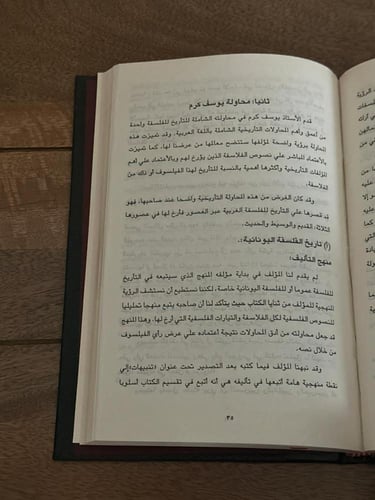 ثانيا: محاولة يوسف كرم
قدم الأستاذ يوسف كرم في محاولته الشاملة للتأريخ للفلسفة واحدة
من أعمق وأهم المحاولات التأريخية الشاملة باللغة العربية. وقد تميزت هذه
المحاولة برؤية واضحة لمؤلفها ستتضح معالمها من عرضنا لها، كما تميزت
بالاعتماد المباشر علي نصوص الفلاسفة الذين يؤرخ لهم وبالاعتماد علي أهم
المؤلفات التأريخية وأكثرها أهمية بالنسبة للتأريخ لهذا الفيلسوف أو ذاك من
الفلاسفة.
وقد كان الغرض من هذه المحاولة التأريخية واضحا عند صاحبها، فهو
قد قصرها علي التأريخ للفلسفة الغربية عبر العصور فأرخ لها في عصورها
الثلاثة؛ القديم والوسيط والحديث.
(أ) تاريخ الفلسفة اليونانية:
منهج التأليف:
لم يقدم لنا المؤلف في بداية مؤلفه المنهج الذي سيتبعه في التأريخ
للفلسفة عموما أو للفلسفة اليونانية خاصة، لكننا نستطيع أن نستشف الرؤية
المنهجية للمؤلف من ثنايا الكتاب حيث يتأكد لنا أن صاحبه يتبع منهجا تحليليا
للنصوص الفلسفية لكل الفلاسفة والتيارات الفلسفية التي أرخ لها. وهذا المنهج
قد جعل محاولته من أدق المحاولات نتيجة اعتماده علي عرض رأي الفيلسوف
من خلال نصه.
وقد نبهنا المؤلف فيما كتبه بعد التصدير تحت عنوان «تنبيهات» إلي
نقطة منهجية هامة أتبعها في تأليفه هي أنه أتبع في تقسيم الكتاب أسلوبا
٣٥